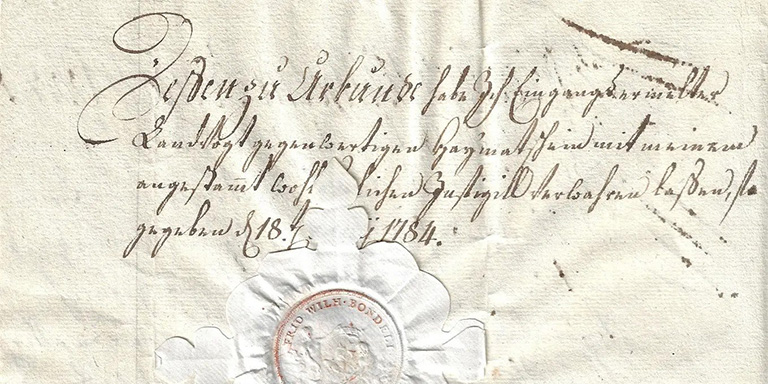 Deßen zu Urkunde habe Ich Eingangs ermelter
Landvogt gegenwertigen Heymatschein mit meinem
angestammt wohl lichen Insigill verwahren laßen, so
gegeben d 18. 1784.
FRID WILH · BONDELI